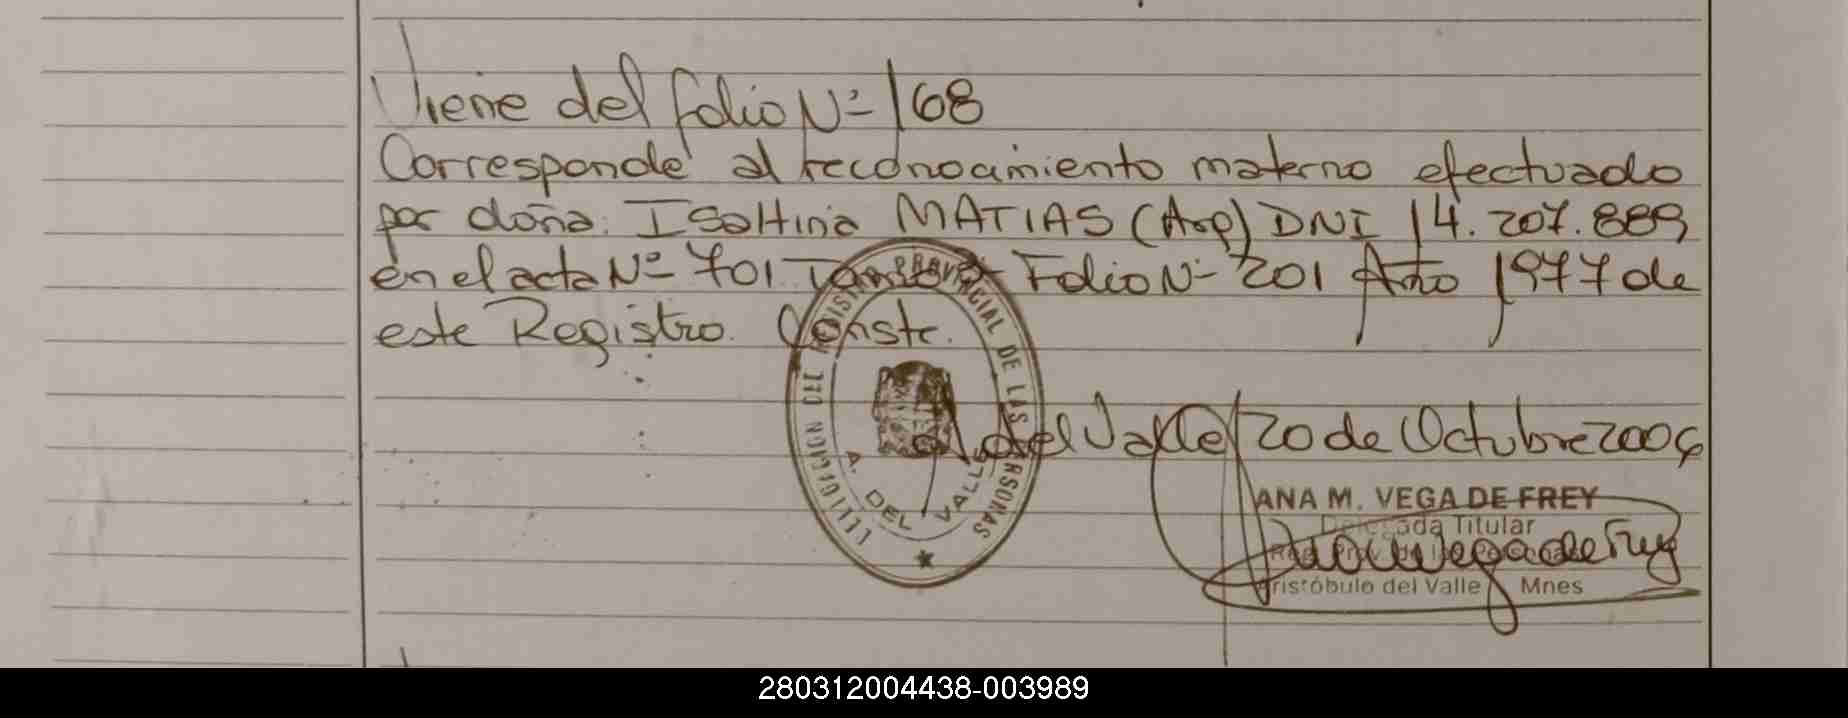 Viene del folio Nº 168
Corresponde al reconocimiento materno efectuado
por doña: Isaltina MATIAS (Arg) DNI 14.207.889
en el acta Nº 701 Tomo Folio Nº 201 Año 1977 de
este Registro. Conste.
A. del Valle 20 de Octubre 2006
DIRECCION DEL REGISTRO PROVINCIAL DE LAS PERSONAS
A. DEL VALLE
ANA M. VEGA DE FREY
Delegada Titular
Ana M Vega de Frey
Aristóbulo del Valle Mnes
280312004438-003989